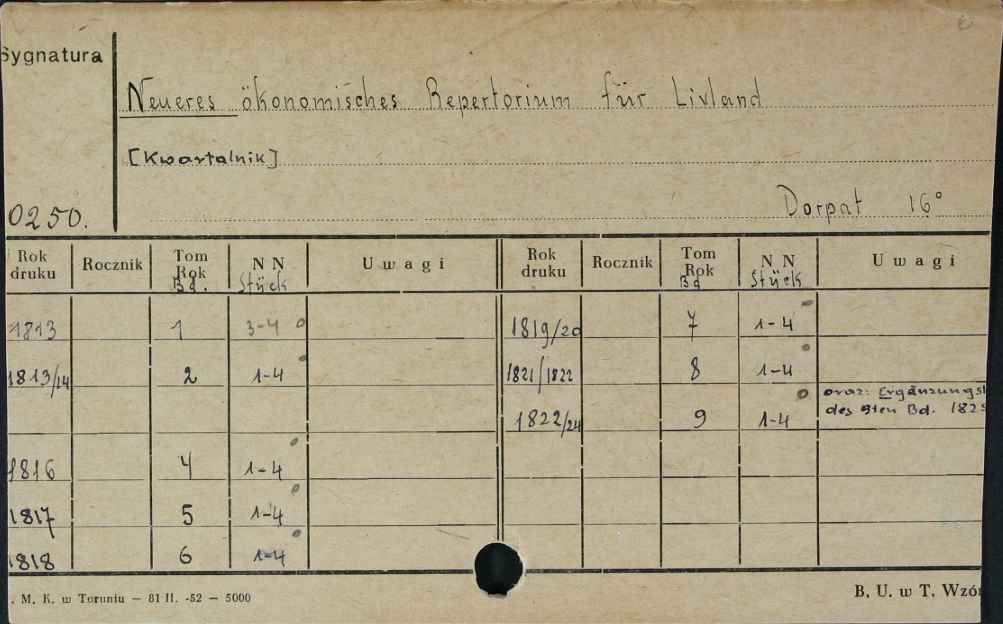 Sygnatura
Neueres ökonomisches Repertorium für Livland
[Kwartalnik]
0250.
Dorpat 16°
Rok druku Rocznik Tom Rok Bd. N N Stück Uwagi Rok druku Rocznik Tom Rok Bd N N Stück Uwagi
1813 1 3-4 1819/20 7 1-4
1813/14 2 1-4 1821/1822 8 1-4
1822/24 9 1-4 oraz: Ergänzungs
des 9ten Bd. 1825
1816 4 1-4
1817 5 1-4
1818 6 1-4
. M. K. w Toruniu — 81 II. -52 — 5000
B. U. w T. Wzór